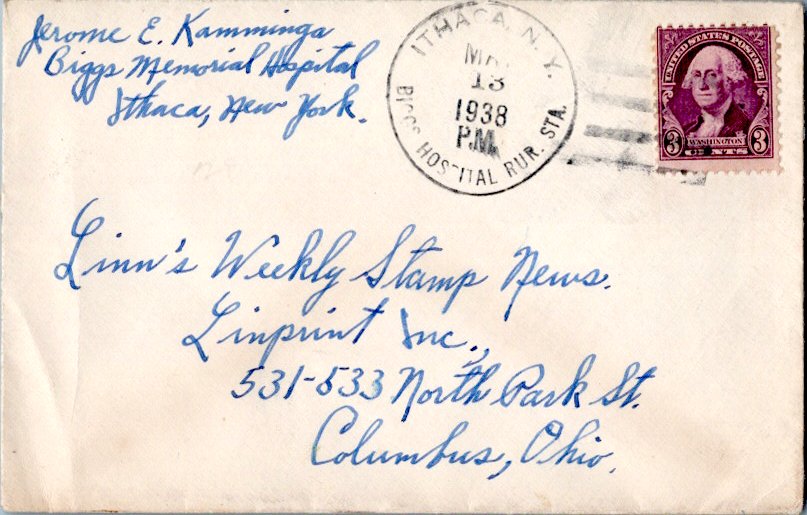 Jerome E. Kamminga
Biggs Memorial Hospital
Ithaca, New York.
ITHACA, N.Y.
13
1938
P.M.
HOSPITAL RUR. STA.
UNITED STATES POSTAGE
3 WASHINGTON 3
CENTS
Linn's Weekly Stamp News.
Linprint Inc.,
531-533 North Park St.
Columbus, Ohio.